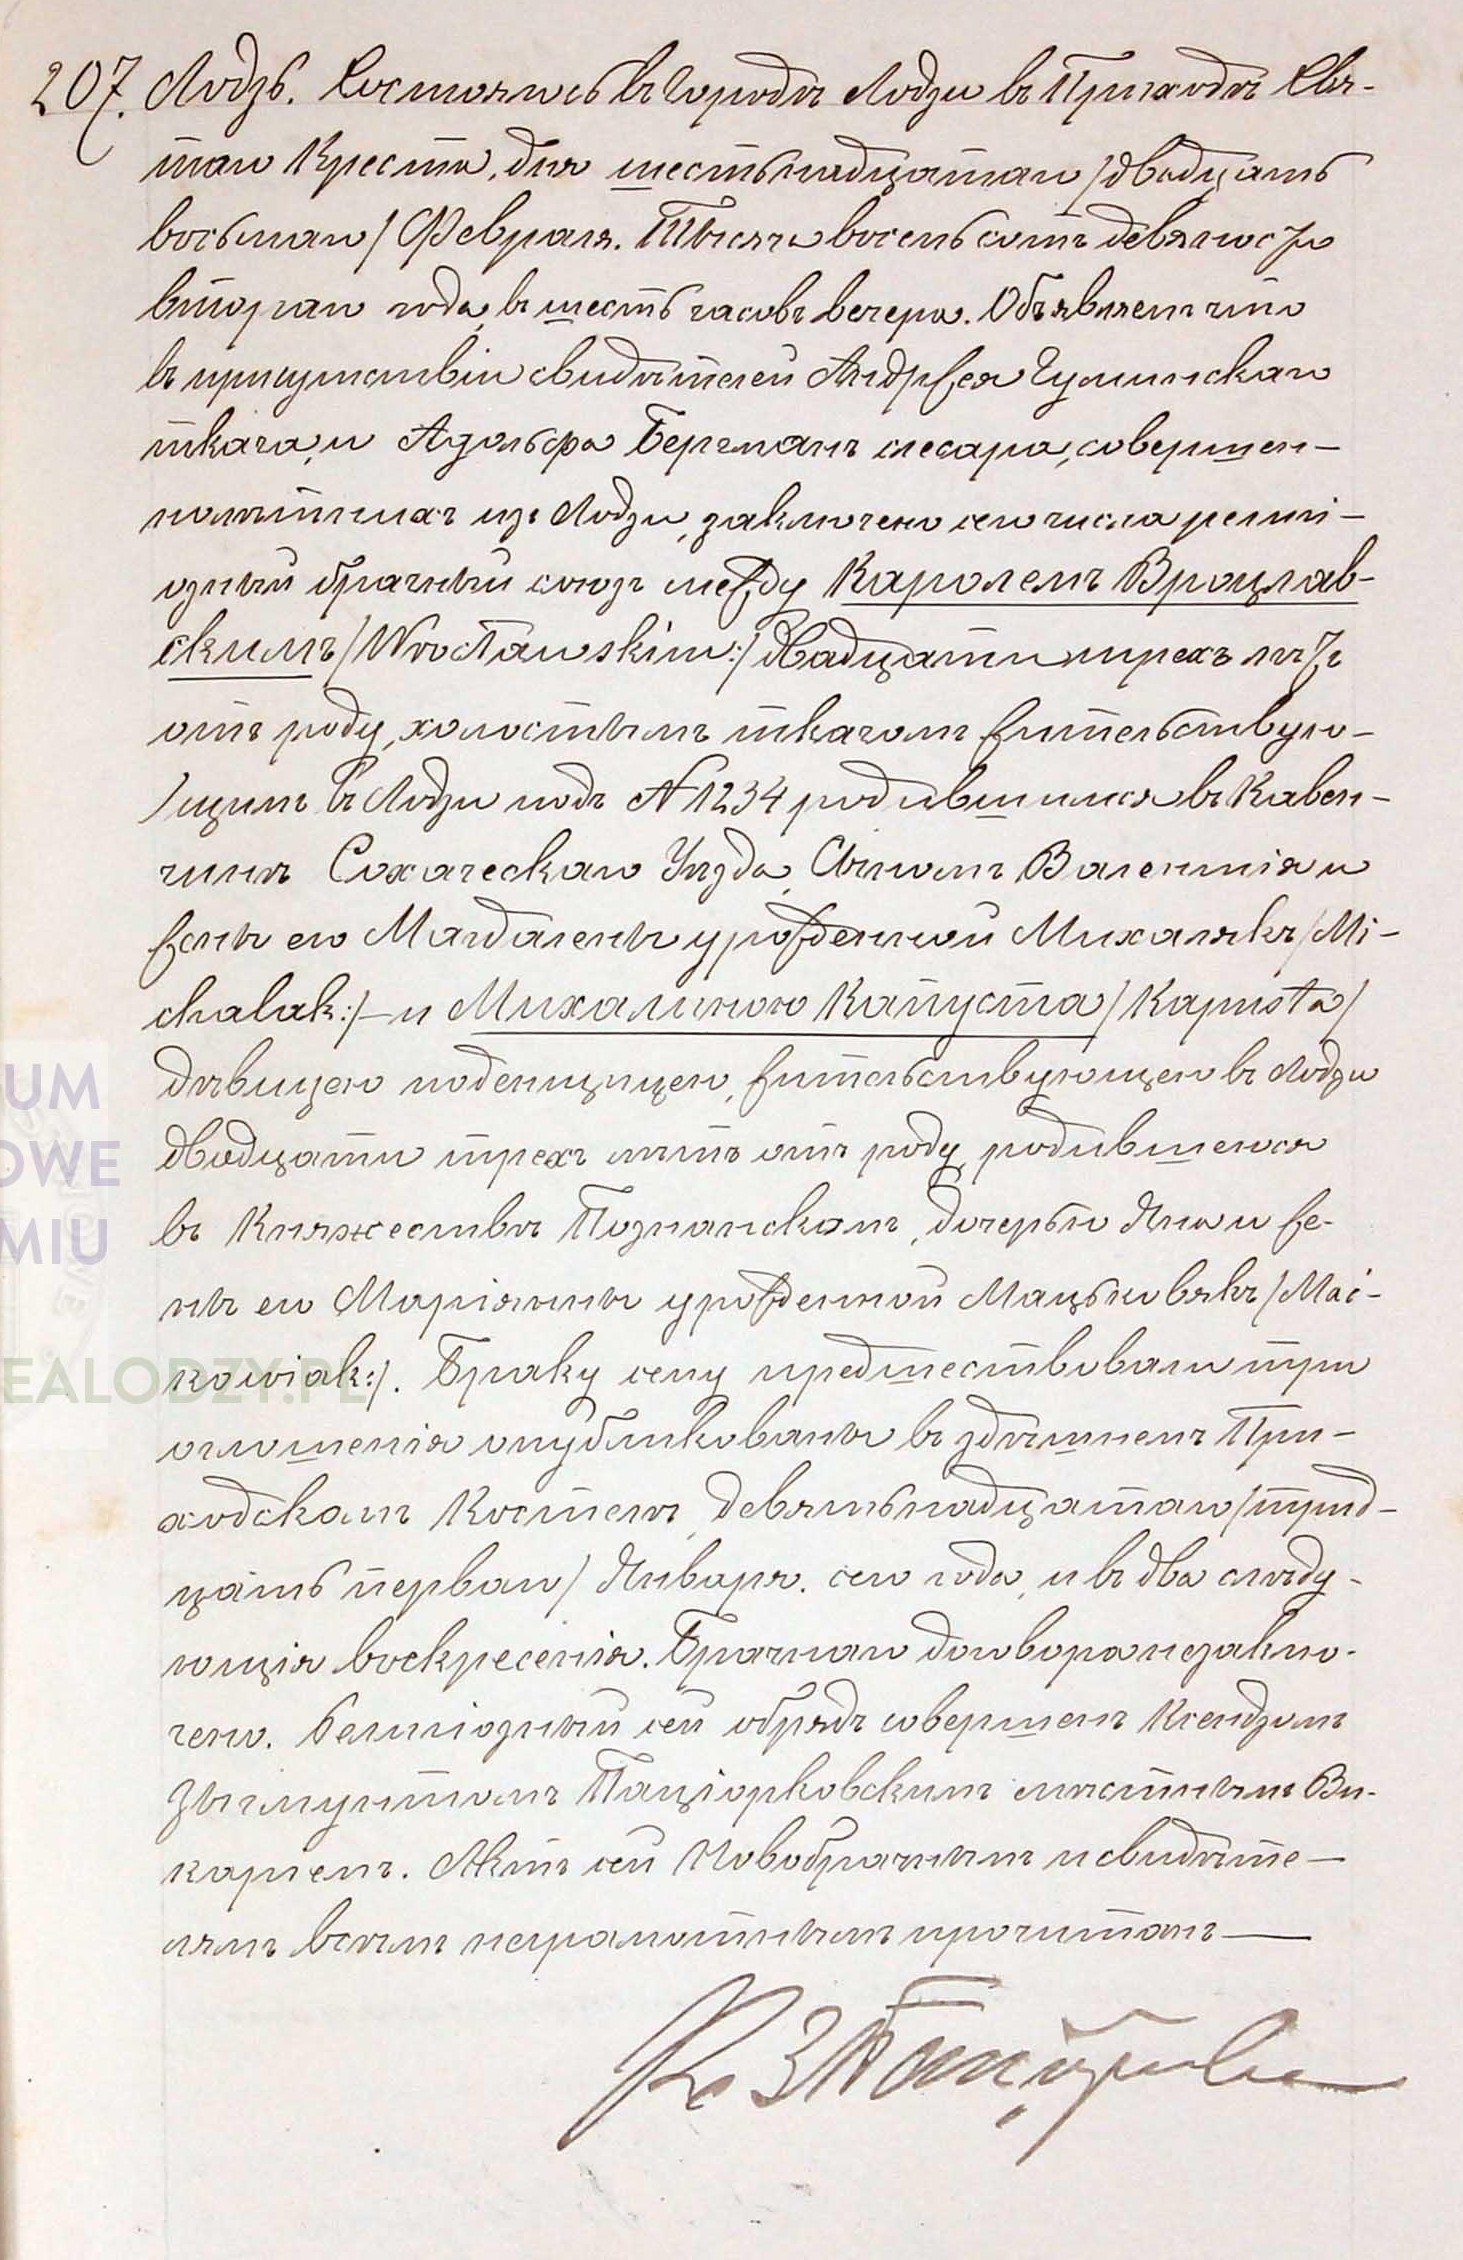 207. Лодзь. Состоялось въ Городѣ Лодзи въ Приходѣ Свя-
таго Креста, дня шестьнадцатаго /двадцать
восьмаго/ Февраля. Тысяча восемьсотъ девяносто
втораго года, въ шесть часовъ вечера. Объявляемъ что
въ присутствіи свидѣтелей Андржея
ткача, и Адольфа Бергманъ слесара, совершен-
нолѣтнихъ изъ Лодзи, заключено сего числа религі-
озный брачный союзъ между Каролемъ Вроцлав-
скимъ /Wrocławskim:/ двадцати трехъ лѣтъ
отъ роду, холостымъ ткачомъ жительствую-
/щимъ въ Лодзи подъ N 1234 родившимся въ Кавен-
чинѣ Сохаческаго Уѣзда, Сыномъ Валентія и
жены его Магдалены урожденной Михалякъ /Mi-
chalak:/ – и Михалиною Капуста /Kapusta/
дѣвицею поденщицею, жительствующею въ Лодзи
двадцати трехъ лѣтъ отъ роду, родившеюся
въ Княжествѣ Познанскомъ, дочерью Яна и же-
ны его Маріянны урожденной Мацьковякъ /Mać-
kowiak:/. Браку сему предшествовали три
оглошенія опубликованы въ здѣшнемъ При-
ходскомъ Костелѣ, девятьнадцатаго /трид-
цать перваго/ Января. сего года, и въ два слѣду-
ющія воскресенія. Брачнаго договора не заклю-
чено. Религіозный сей обрядъ совершенъ Ксендзомъ
Зыгмунтомъ Паціорковскимъ мѣстнымъ Ви-
каріемъ. Актъ сей Новобрачнымъ и свидѣте-
лямъ всѣмъ неграмотнымъ прочитанъ —
UM
OWE
MIU
EALODZY.PL